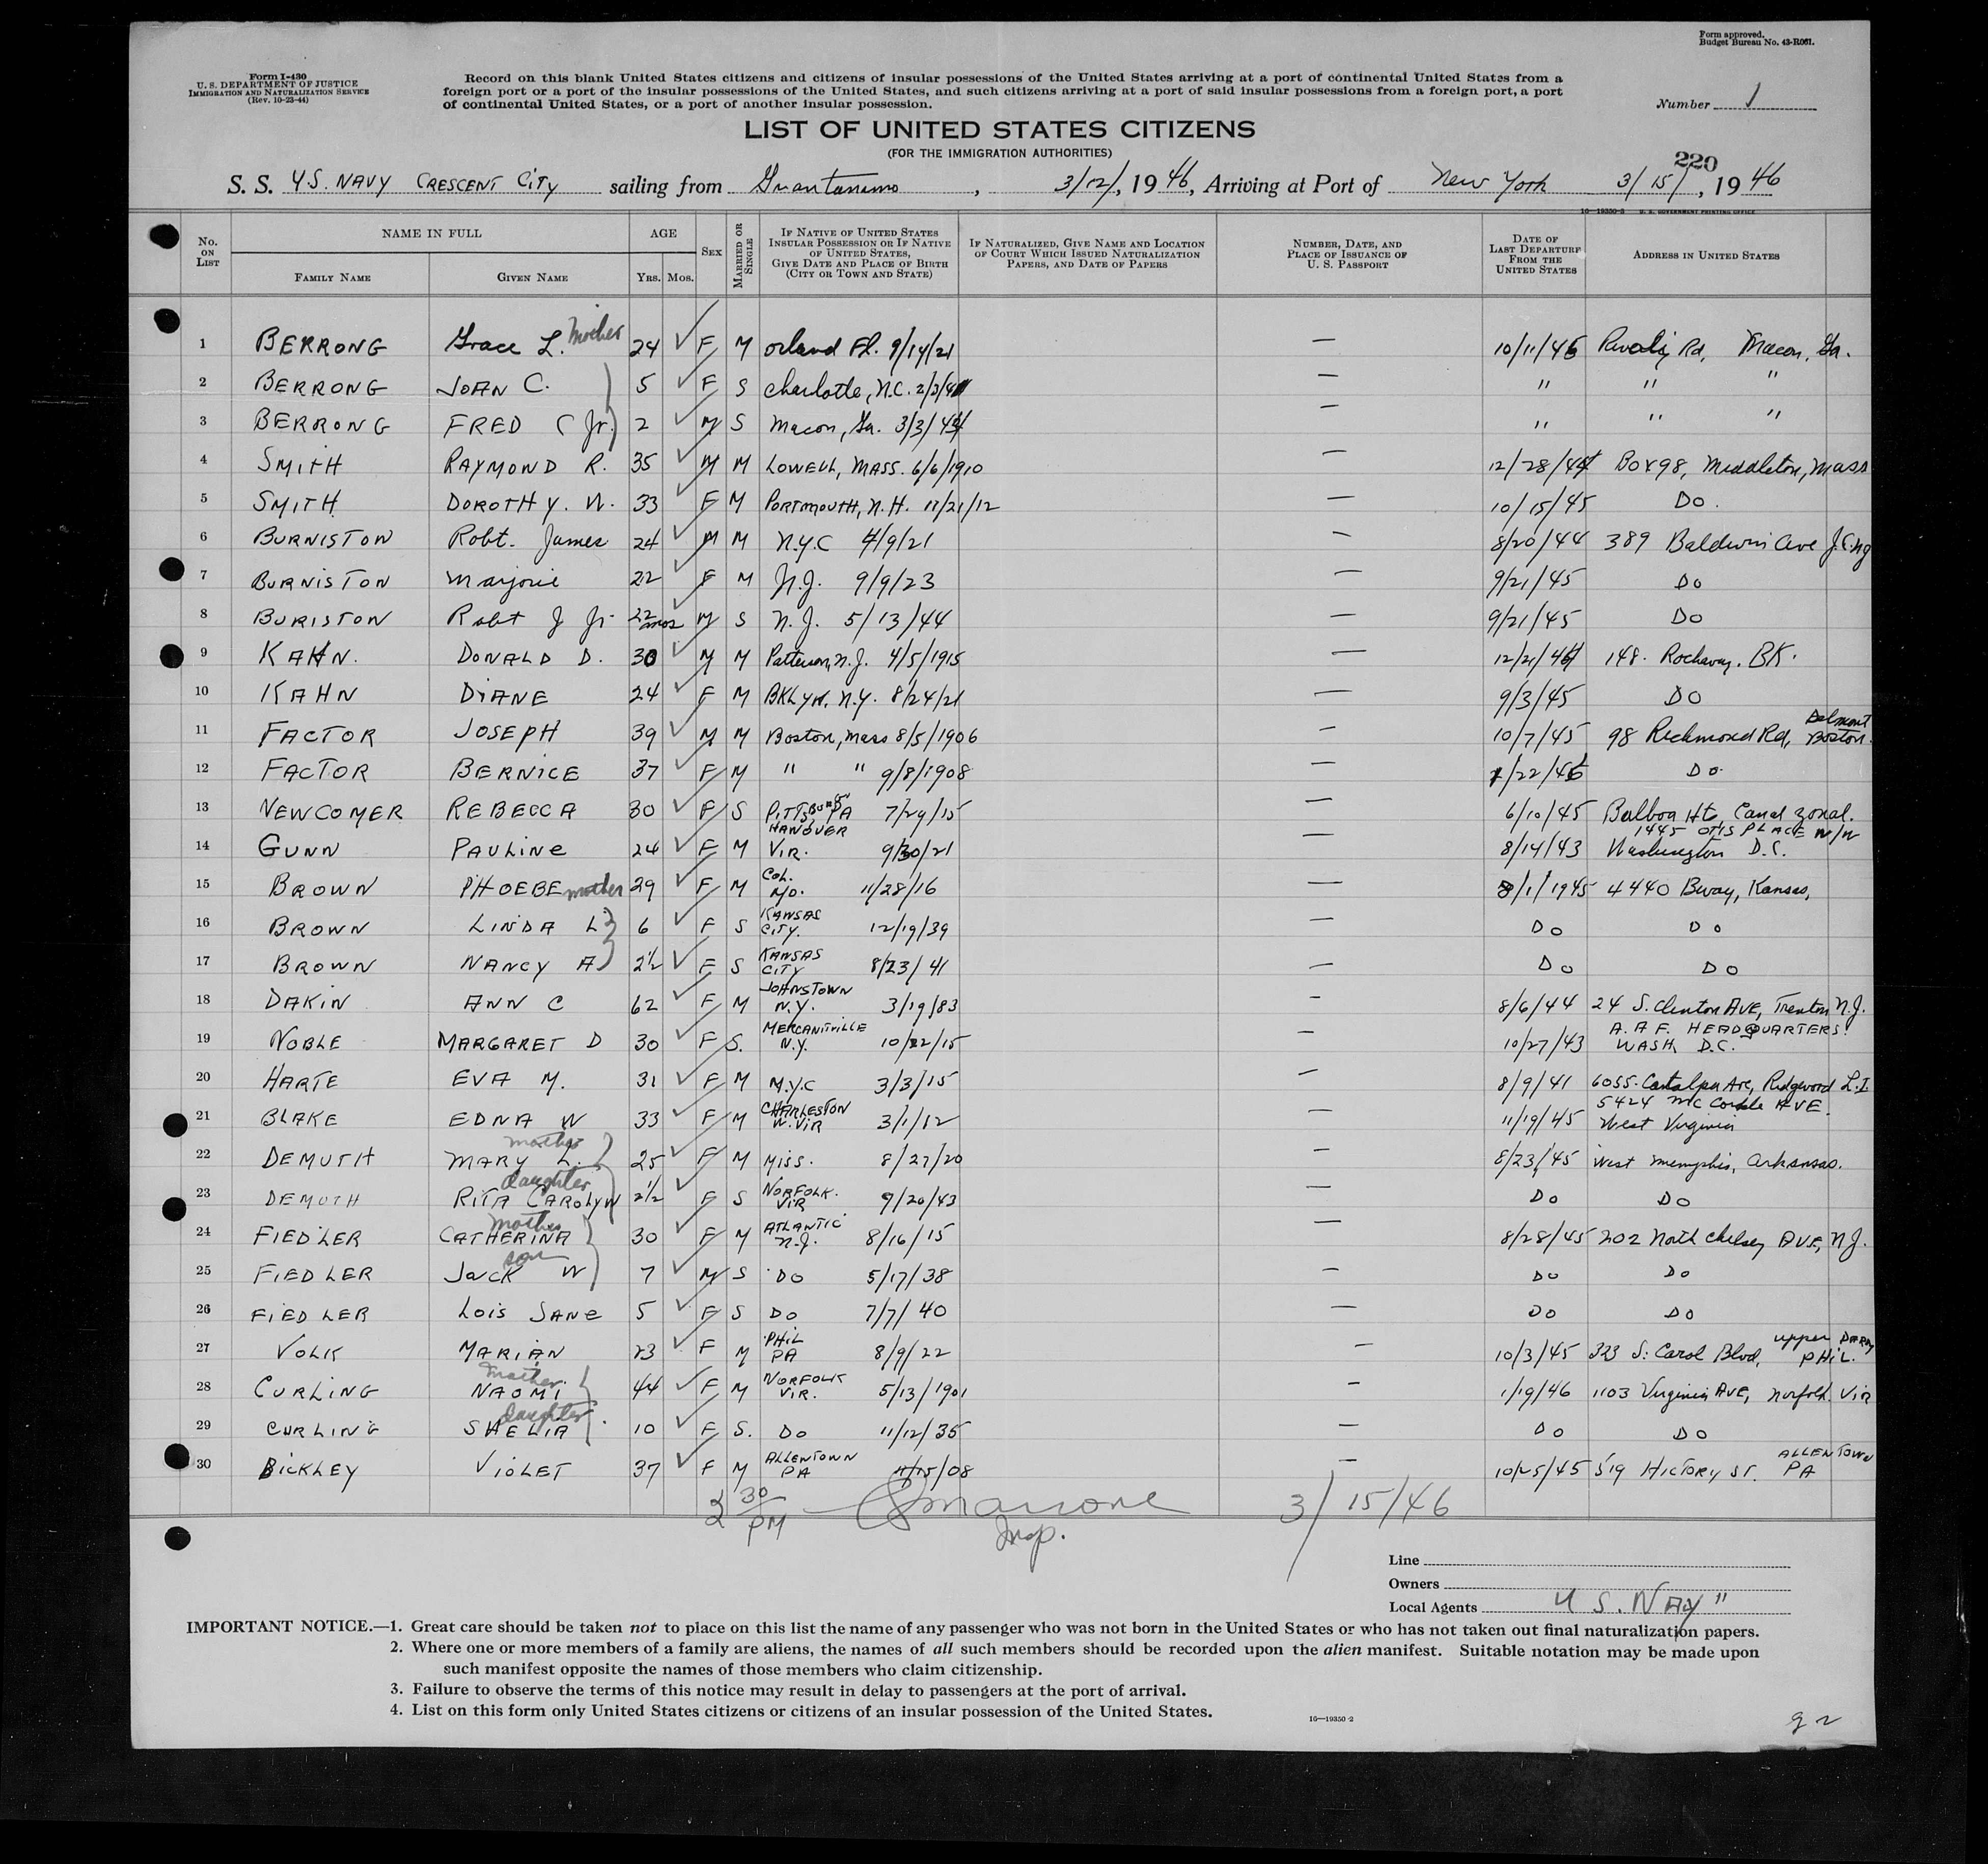 Form approved.
Budget Bureau No. 43-R061.
Form I-430
U. S. DEPARTMENT OF JUSTICE
IMMIGRATION AND NATURALIZATION SERVICE
(Rev. 10-23-44)
Record on this blank United States citizens and citizens of insular possessions of the United States arriving at a port of continental United States from a
foreign port or a port of the insular possessions of the United States, and such citizens arriving at a port of said insular possessions from a foreign port, a port
of continental United States, or a port of another insular possession.
Number 1
LIST OF UNITED STATES CITIZENS
(FOR THE IMMIGRATION AUTHORITIES)
220
S. S. U.S. NAVY CRESCENT CITY sailing from Guantanamo, 3/12/, 1946, Arriving at Port of New York 3/15/, 1946
16-19350-3 U. S. GOVERNMENT PRINTING OFFICE
No. ON LIST NAME IN FULL FAMILY NAME GIVEN NAME AGE YRS. MOS. SEX MARRIED OR SINGLE IF NATIVE OF UNITED STATES INSULAR POSSESSION OR IF NATIVE OF UNITED STATES, GIVE DATE AND PLACE OF BIRTH (CITY OR TOWN AND STATE) IF NATURALIZED, GIVE NAME AND LOCATION OF COURT WHICH ISSUED NATURALIZATION PAPERS, AND DATE OF PAPERS NUMBER, DATE, AND PLACE OF ISSUANCE OF U. S. PASSPORT DATE OF LAST DEPARTURE FROM THE UNITED STATES ADDRESS IN UNITED STATES
1 BERRONG Grace L. Mother 24 ✓ F M Orland Fl. 9/14/21 — 10/11/45 Rd, Macon, Ga.
2 BERRONG JOAN C. 5 ✓ F S Charlotte, N.C. 2/3/41 — " " "
3 BERRONG FRED C Jr. 2 ✓ M S Macon, Ga. 3/3/44 — " " "
4 SMITH RAYMOND R. 35 ✓ M M LOWELL, MASS. 6/6/1910 — 12/28/44 Box 98, Middleton, Mass
5 SMITH DOROTHY. W. 33 F M PORTMOUTH, N.H. 11/21/12 — 10/15/45 DO.
6 BURNISTON Robt. James 24 ✓ M M N.Y.C 4/9/21 — 8/20/44 389 Baldwin Ave J.C. NJ
7 BURNISTON Marjorie 22 ✓ F M N.J. 9/9/23 — 9/21/45 DO
8 BURISTON Robt J Jr. 22 mos M S N.J. 5/13/44 — 9/21/45 DO
9 KAHN. DONALD D. 30 ✓ M M Patterson, N.J. 4/5/1915 — 12/21/44 148. Rockaway. BK.
10 KAHN DIANE 24 ✓ F M BKLYN. N.Y. 8/24/21 — 9/3/45 DO
11 FACTOR JOSEPH 39 ✓ M M Boston, Mass 8/5/1906 — 10/7/45 98 Richmond Rd, Belmont Boston.
12 FACTOR BERNICE 37 ✓ F M " " 9/8/1908 — 1/22/46 DO.
13 NEWCOMER REBECCA 30 ✓ F S PITTSBURGH PA 7/29/15 — 6/10/45 Balboa Hts, Canal zonal.
14 GUNN PAULINE 24 ✓ F M HANOVER VIR. 9/30/21 — 8/14/43 1445 OTIS PLACE N/W Washington D.C.
15 BROWN PHOEBE mother 29 ✓ F M Col. MO. 11/28/16 — 8/1/1945 4440 Bway, Kansas,
16 BROWN LINDA L 6 ✓ F S KANSAS CITY. 12/19/39 — DO DO
17 BROWN NANCY A 2½ ✓ F S KANSAS CITY 8/23/41 — DO DO
18 DAKIN ANN C 62 ✓ F M JOHNSTOWN N.Y. 3/19/83 — 8/6/44 24 S. Clinton AVE, Trenton N.J.
19 NOBLE MARGARET D 30 ✓ F S. MERCANTVILLE N.Y. 10/22/15 — 10/27/43 A.A.F. HEADQUARTERS. WASH. D.C.
20 HARTE EVA M. 31 ✓ F M N.Y.C 3/3/15 — 8/9/41 6055. Catalpa Ave, Ridgewood L.I.
21 BLAKE EDNA W 33 ✓ F M CHARLESTON W. VIR 3/1/12 — 11/19/45 5424 McCorkle AVE. West Virginia
22 DEMUTH MARY L. mother 25 ✓ F M MISS. 8/27/20 — 8/23/45 West Memphis, Arkansas.
23 DEMUTH RITA CAROLYN daughter 2½ F S NORFOLK. VIR 9/20/43 — DO DO
24 FIEDLER CATHERINA mother 30 ✓ F M ATLANTIC N.J. 8/16/15 — 8/28/45 202 North Chelsey AVE, NJ.
25 FIEDLER JACK W son 7 ✓ M S DO 5/17/38 — DO DO
26 FIEDLER LOIS JANE 5 ✓ F S DO 7/7/40 — DO DO
27 VOLK MARIAN 23 ✓ F M PHIL PA 8/9/22 — 10/3/45 323 S. Carol Blvd, upper DARBY PHIL.
28 CURLING NAOMI mother 44 ✓ F M NORFOLK VIR. 5/13/1901 — 1/19/46 1103 Virginia AVE, Norfolk. Vir
29 CURLING SHELIA daughter 10 ✓ F S. DO 11/12/35 — DO DO
30 BICKLEY VIOLET 37 ✓ F M ALLENTOWN PA 11/15/08 — 10/25/45 519 HICTORY ST. ALLENTOWN PA
2 30 PM Marrone Insp. 3/15/46
Line
Owners
Local Agents U.S. NAVY"
IMPORTANT NOTICE.—1. Great care should be taken not to place on this list the name of any passenger who was not born in the United States or who has not taken out final naturalization papers.
2. Where one or more members of a family are aliens, the names of all such members should be recorded upon the alien manifest. Suitable notation may be made upon
such manifest opposite the names of those members who claim citizenship.
3. Failure to observe the terms of this notice may result in delay to passengers at the port of arrival.
4. List on this form only United States citizens or citizens of an insular possession of the United States.
16—19350-2